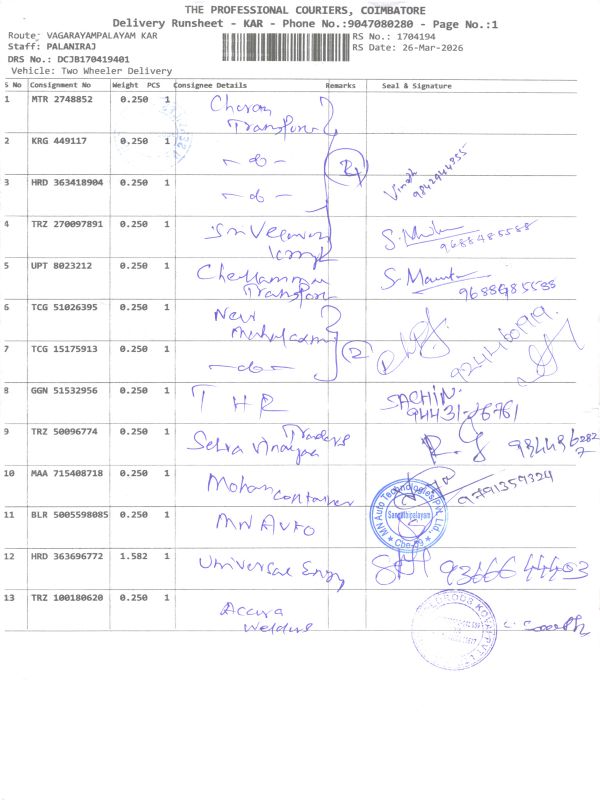 THE PROFESSIONAL COURIERS, COIMBATORE
Delivery Runsheet - KAR - Phone No.:9047080280 - Page No.:1
Route: VAGARAYAMPALAYAM KAR
RS No.: 1704194
Staff: PALANIRAJ
RS Date: 26-Mar-2026
DRS No.: DCJB170419401
Vehicle: Two Wheeler Delivery
S No Consignment No Weight PCS Consignee Details Remarks Seal & Signature
1 MTR 2748852 0.250 1 Cheran
Transport
2 KRG 449117 0.250 1 - do -
3 HRD 363418904 0.250 1 - do - Vinoth
4 TRZ 270097891 0.250 1 Sri Veeman
9688485588
5 UPT 8023212 0.250 1 Chellamman S.
Transport 9688485588
6 TCG 51026395 0.250 1 New
7 TCG 15175913 0.250 1 - do - 2
8 GGN 51532956 0.250 1 T H R SACHIN.
94431-26761
9 TRZ 50096774 0.250 1 Selva Vinayaga Traders
10 MAA 715408718 0.250 1 Mohan Container 9791359324
11 BLR 5005598085 0.250 1 MN AUTO
MN Auto Technologies Pvt. Ltd.
Sangothipalayam
Cbe-
12 HRD 363696772 1.582 1 Universal Engg 9366644403
13 TRZ 100180620 0.250 1 Accura
Welders